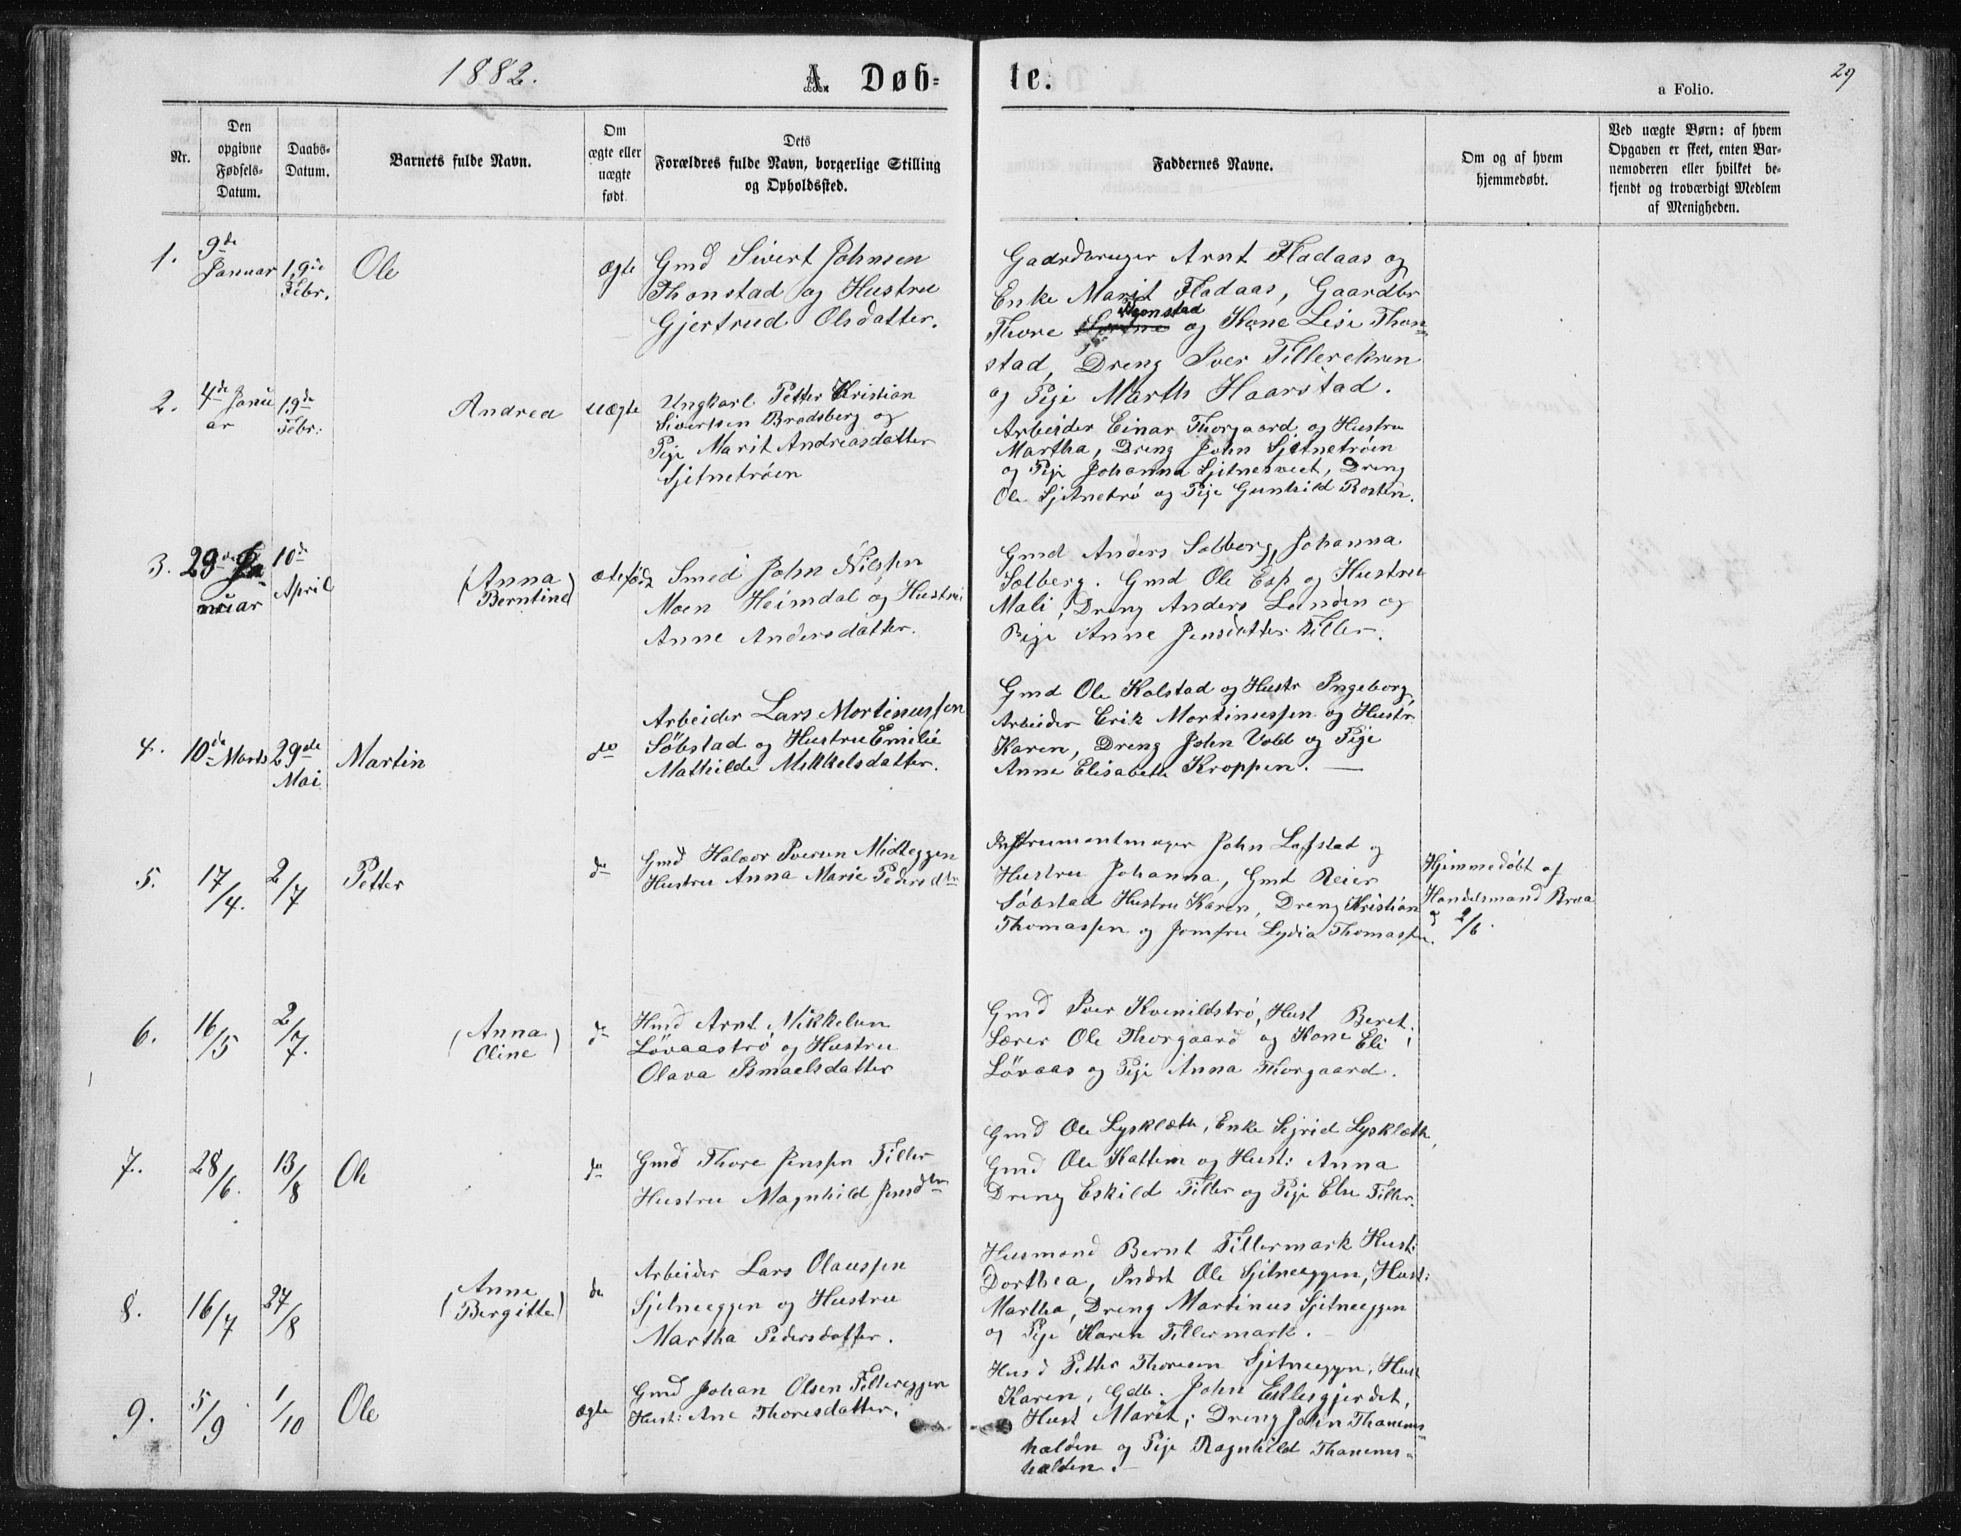 1882.
A. Døb-
te.
a Folio.
29
Nr.
Den
opgivne
Fødsels-
Datum.
Daabs-
Datum.
Barnets fulde Navn.
Om
ægte eller
uægte
født.
Dets
Forældres fulde Navn, borgerlige Stilling
og Opholdssted.
Faddernes Navne.
Om og af hvem
hjemmedøbt.
Ved uægte Børn: af hvem
Opgaven er skeet, enten Bar-
nemoderen eller hvilket be-
kjendt og troværdigt Medlem
af Menigheden.
1.
9de
Januar
19de
Febr.
Ole
ægte
Gmd Sivert Johnsen
Thonstad og Hustru
Gjertrud Olsdatter.
Gaardbruger Arnt Fladaas og
Enke Marit Fladaas, Gaardbr
Thore Thonstad og Kone Lise Thon-
stad, Dreng Iver Tillerekren
og Pige Marth Haarstad.
2.
4de Janu
ar
19de
Febr:
Andrea
uægte
Ungkarl Petter Kristian
Sivertsen Bradsberg og
Pige Marit Andreasdatter
Sjetnetrøen
Arbeider Einar Thorgaard og Hustru
Martha, Dreng John Sjetnetrøen
og Pige Johanna Sjetnesveet, Dreng
Ole Sjetnetrø og Pige Gunhild Rosten.
3.
29de Ja
nuar
10de
April
(Anna
Berntine)
Smed John Nilssen
Moen Heimdal og Hustru
Anne Andersdatter.
Gmd Anders Solberg, Johanna
Solberg. Gmd Ole Esp og Hustru
Mali, Dreng Anders Lunden og
Pige Anne Jensdatter Tiller.
4.
10de Marts
29de
Mai
Martin
do
Arbeider Lars Martinussen
Söbstad og Hustru Emilie
Mathilde Mikkelsdatter.
Gmd Ole Kolstad og Hustr Ingeborg,
Arbeider Erik Martinussen og Hustr.
Karen, Dreng John Vold og Pige
Anne Elisabeth Kroppen. —
5.
17/4.
2/7
Petter
do
Gmd Halvor Iversen Midteggen
Hustru Anna Marie Pedersdtr
Instrumentmager John Lofstad og
Hustru Johanna, Gmd Reier
Söbstad Hustru Karen, Dreng Kristian
Thomassen og Jomfru Lydia Thomassen.
Hjemmedöbt af
Handelsmand Braa
2/6.
6.
16/5
2/7.
(Anna
Oline)
do
Hmd Arnt Mikkelsen
Løvaastrø og Hustru
Olava Ismaelsdatter
Gmd Iver Kvenildstrø, Hust Beret;
Lærer Ole Thorgaard og Kone Eli;
Løvaas og Pige Anna Thorgaard.
7.
28/6.
13/8
Ole
do
Gmd Thore Jenssen Tiller
Hustru Magnhild Jensdtr
Gmd Ole Lysklæth, Enke Sigrid Lysklæth,
Gmd Ole Kattem og Hust: Anna
Dreng Eskild Tiller og Pige Else Tiller.
8.
16/7
27/8
Anne
(Bergitte)
do
Arbeider Lars Olaussen
Sjetneeggen og Hustru
Martha Pedersdatter.
Husmand Bernt Tillermark Hust:
Dorthea, Indst Ole Sjetneeggen, Hust:
Martha, Dreng Martinus Sjetneeggen
og Pige Karen Tillermark. –
9.
5/9
1/10
Ole
ægte
Gmd Johan Olsen Tillereggen
Hust: Ane Thoresdatter.
Husd Petter Thoresen Sjetneeggen, Hust
Karen, Gdb. John Estesgjerdet,
Hust Marit; Dreng John Thanems-
halden og Pige Ragnhild Thanems-
halden. –